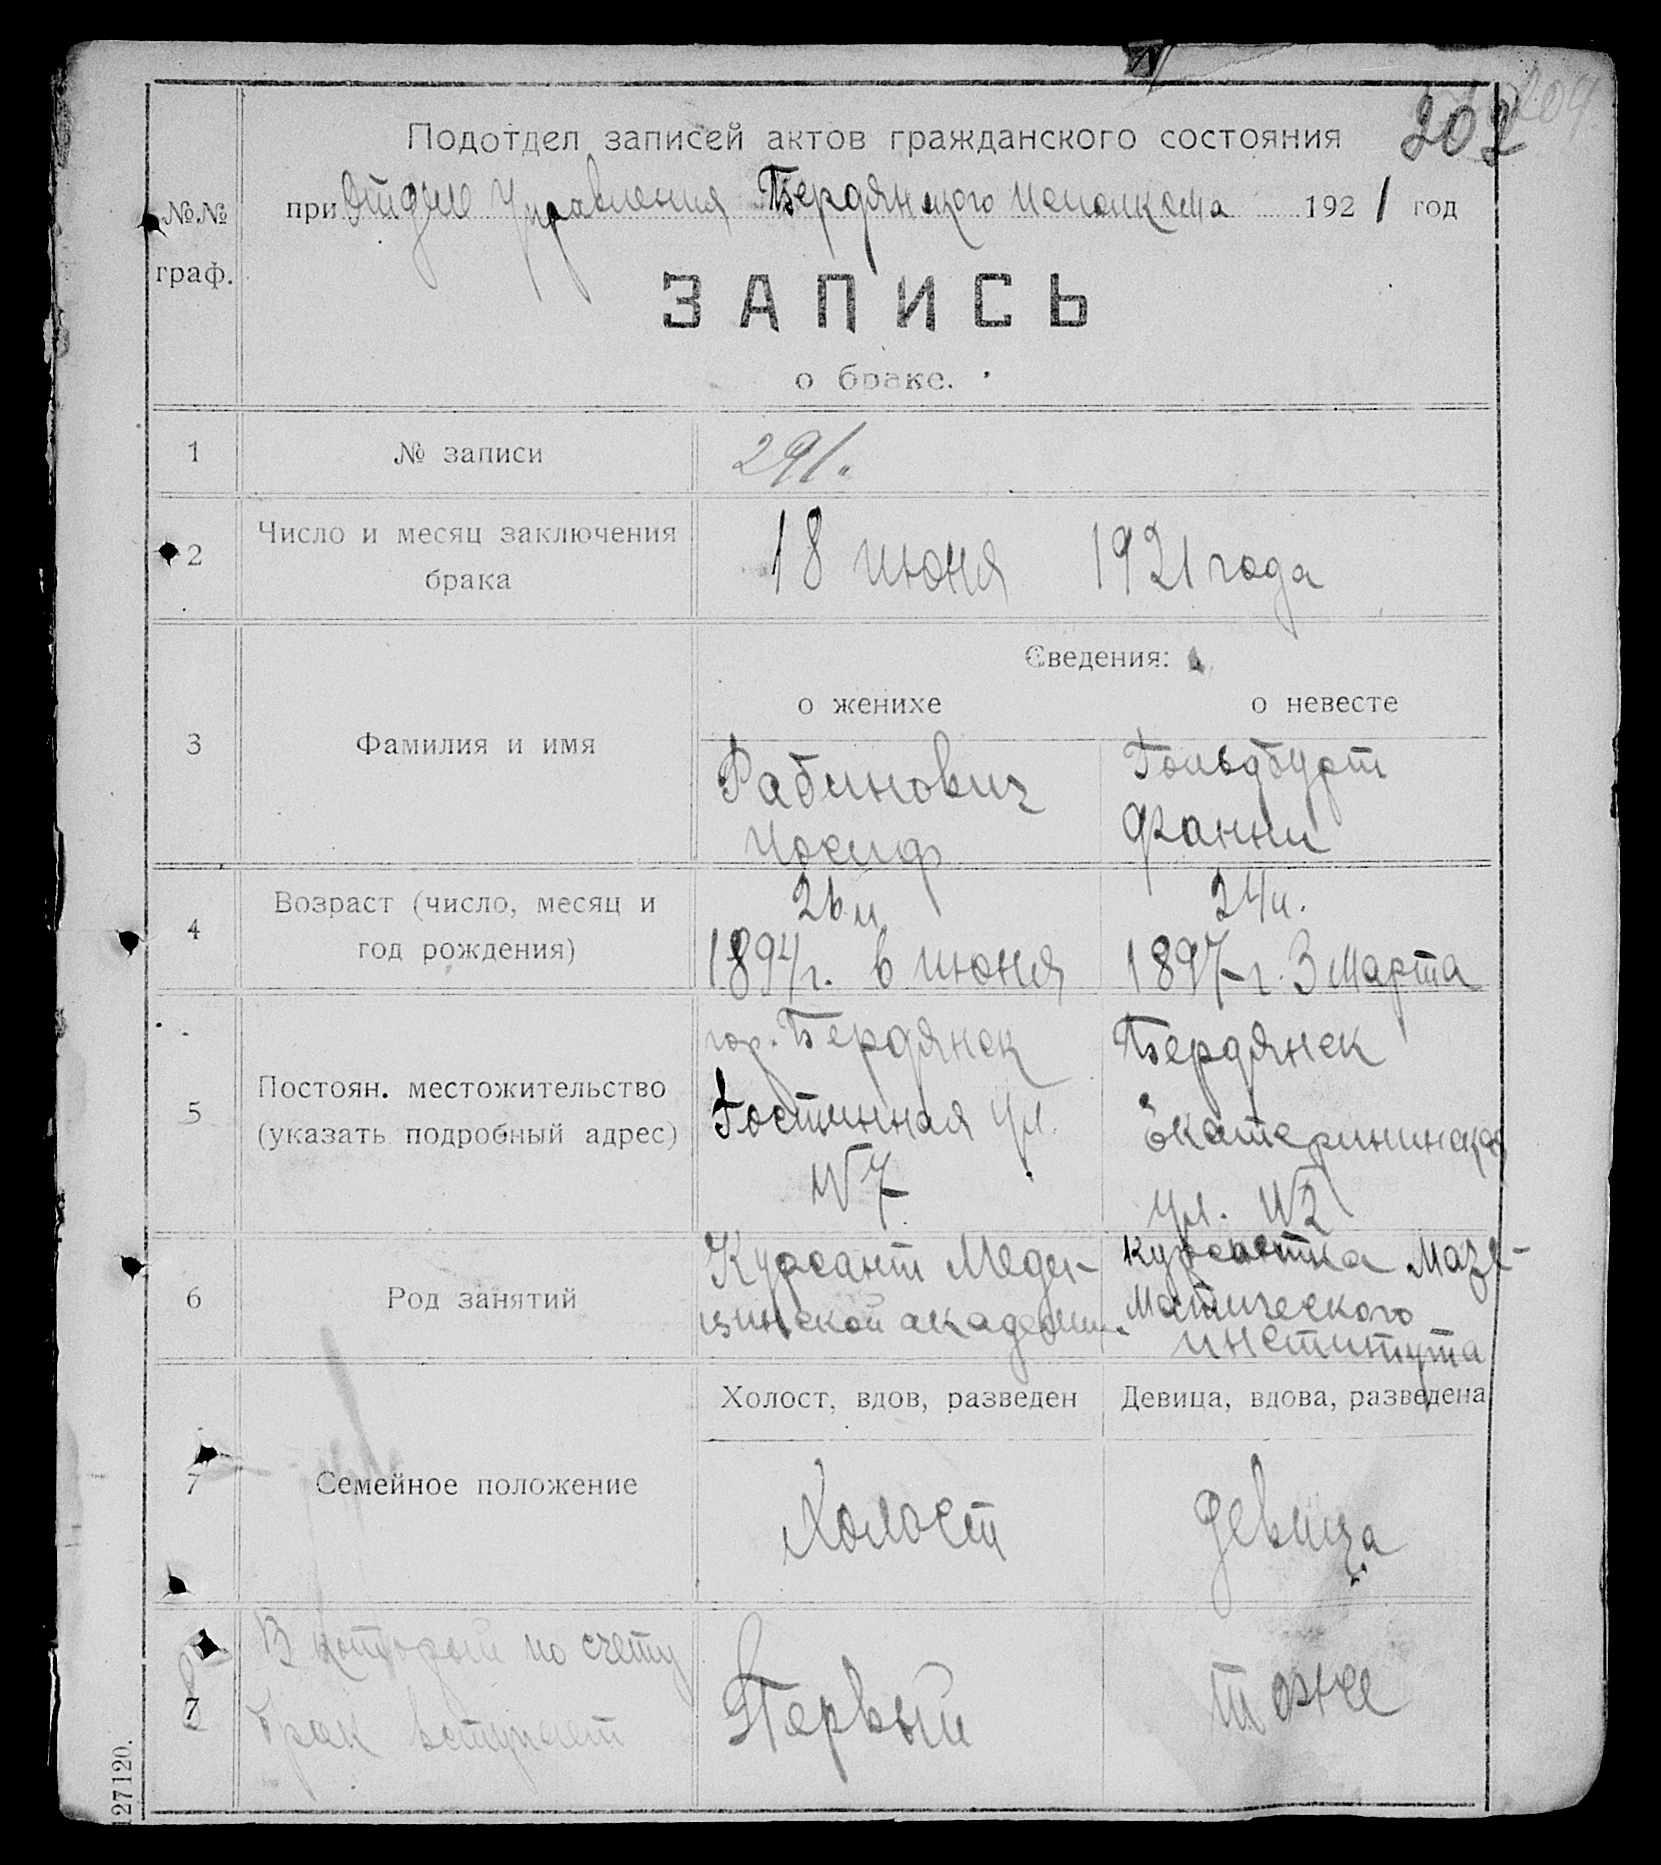 204
202
Подотдел записей актов гражданского состояния
№№ граф.
при Отделе Управления Бердянского Исполкома 1921 год
ЗАПИСЬ
о браке.
1 № записи 291.
2 Число и месяц заключения брака 18 июня 1921 года
Сведения:
о женихе о невесте
3 Фамилия и имя
Рабинович Гольдбурт
Иосиф Фанни
4 Возраст (число, месяц и год рождения)
26 л 24 л.
1894 г. 6 июня 1897 г. 3 марта
5 Постоян. местожительство (указать подробный адрес)
гор. Бердянск Бердянск
Гостинная ул. Екатерининская
№7 ул. №2
6 Род занятий
Курсант Меди- курсантка Мате-
цинской академии матического
института
Холост, вдов, разведен Девица, вдова, разведена
7 Семейное положение
Холост девица
8 В который по счету
брак вступает
Первый тоже
127120.